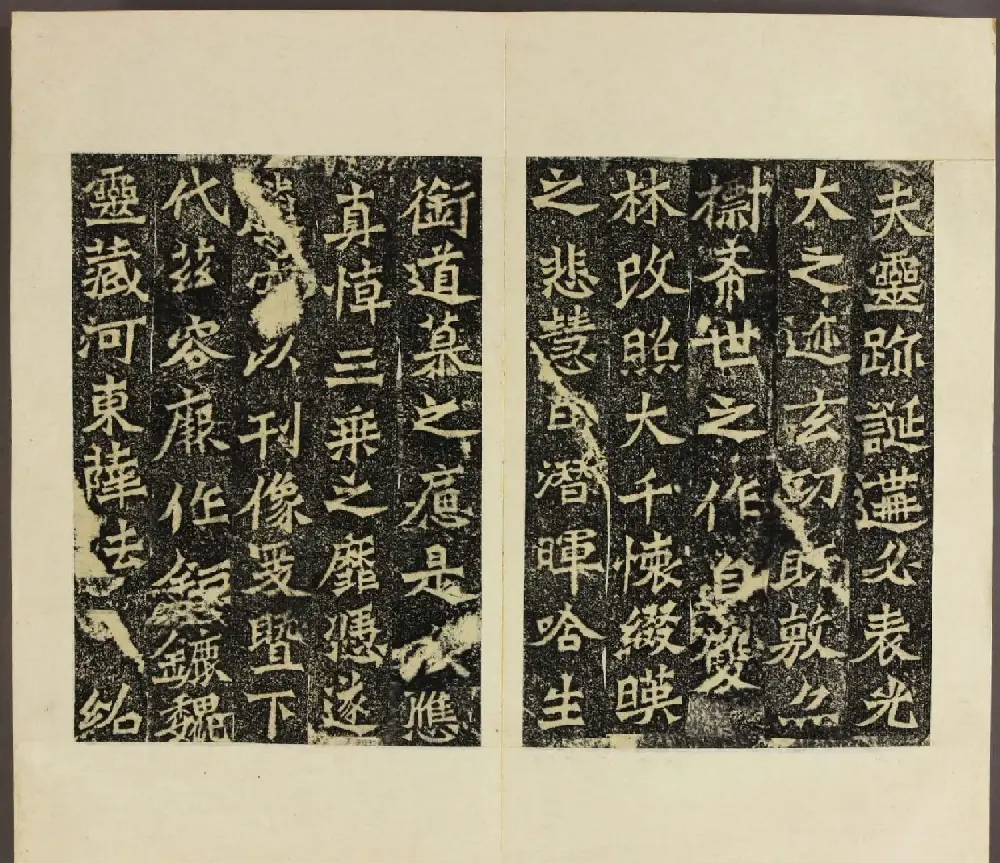 夫靈跡誕遘必表光
大之迹玄功既敷亦
標希世之作自雙
林改照大千懷綴暎
之悲慧日潛暉唅生
銜道慕之痛是應
真悼三乘之靡憑遂
騰空以刊像爰暨下
代茲容厥作鉅鏕魏
靈藏河東薛法紹